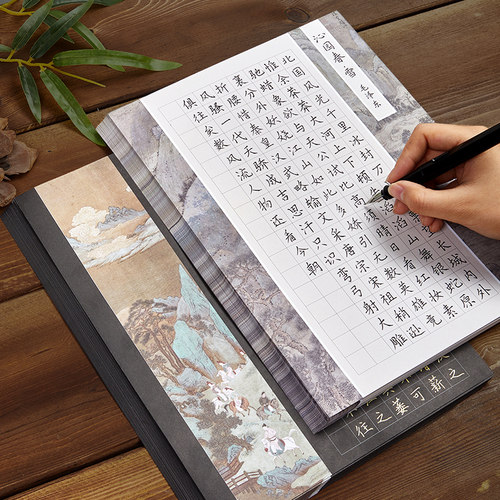 沁园春
雪
毛泽东
北国风光千里冰封万长城内外
惟余莽莽大河上下顿滔滔山舞银蛇原
驰蜡象欲与天公试比高须晴日看红妆素
裹分外妖娆江山如此多娇引无数英雄竞
折腰惜秦皇汉武略输文采唐宗宋祖梢逊
风骚一代天骄成吉思汗只识弯弓射大雕
俱往矣数风流人物还看今朝
往之萎可薪之